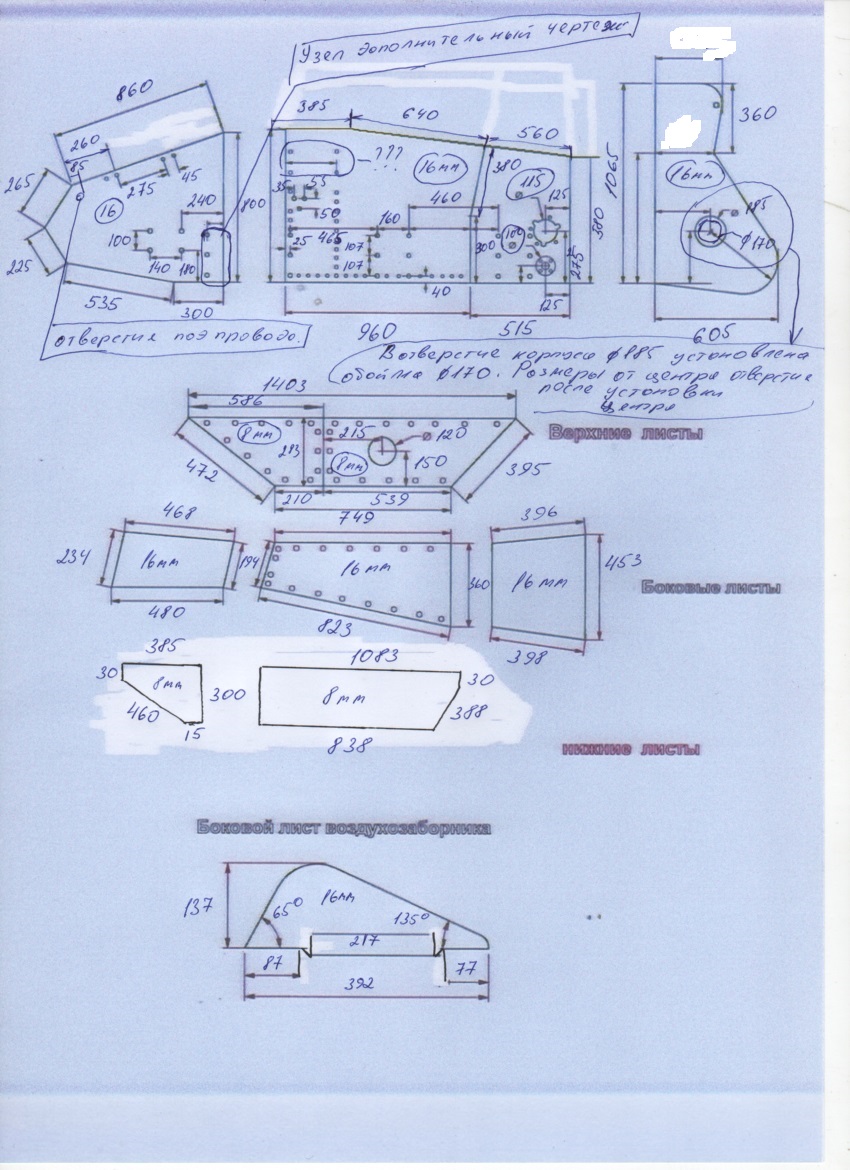 Узел дополнительный чертеж
860
385
640
560
360
260
85
265
275
45
16
240
100
140
110
225
535
300
800
???
16мм
380
35
55
50
460
160
25
465
107
107
300
40
185
125
100
275
125
580
960
515
1065
16мм
⌀ 185
ф170
605
отверстия под провода.
В отверстие корпуса ф185 установлена
обойма ф170. Размеры от центра отверстие
после установки
центра
1403
586
8мм
283
215
⌀ 120
8мм
150
472
395
210
539
749
Верхние листы
468
396
234
16мм
194
16мм
360
16мм
453
480
823
398
Боковые листы
385
1083
30
8мм
300
8мм
30
460
388
15
838
нижние листы
Боковой лист воздухозаборника
137
16мм
65°
135°
217
87
77
392